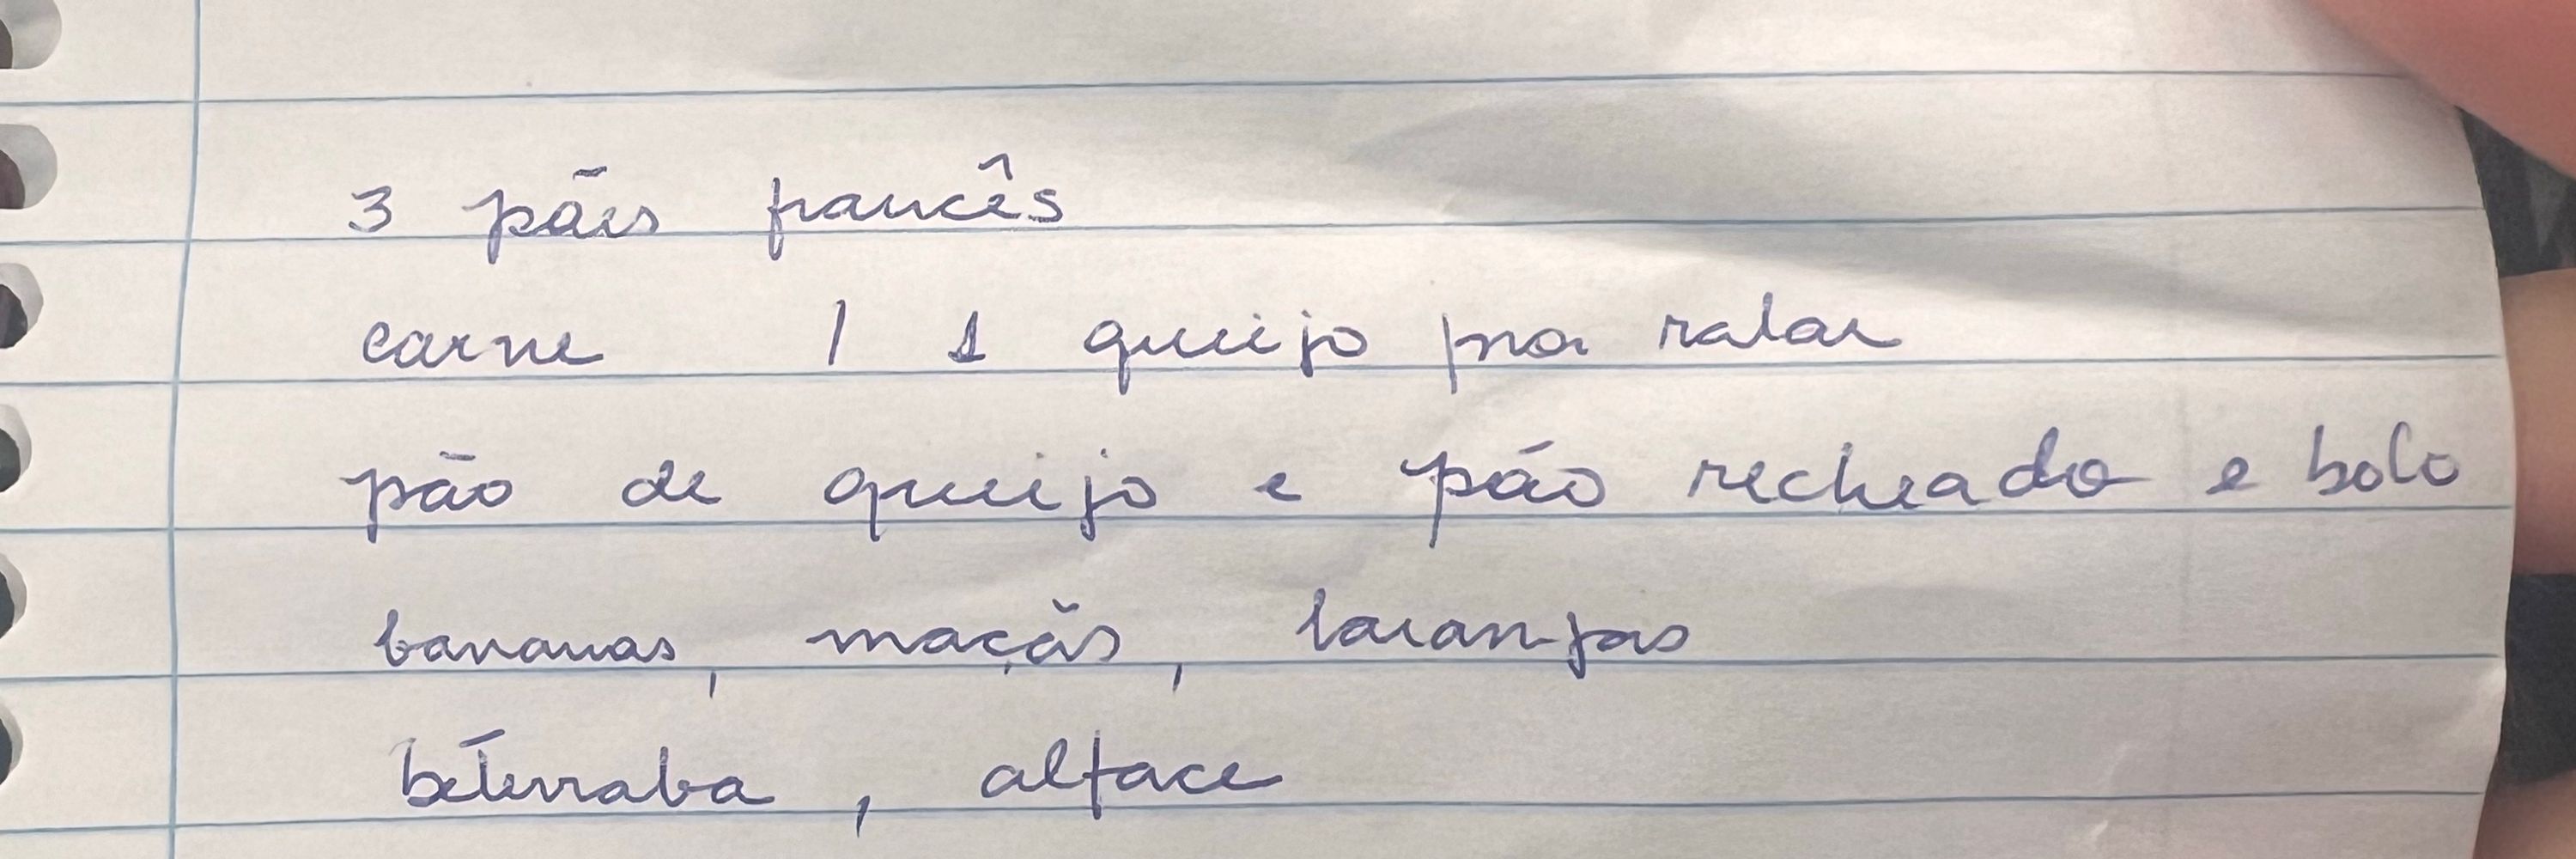 3 pães francês
carne / 1 queijo pra ralar
pão de queijo e pão recheado e bolo
bananas, maçãs, laranjas
beterraba, alface